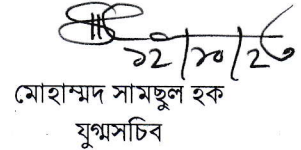 ১২/১০/২৫
মোহাম্মদ সামছুল হক
যুগ্মসচিব